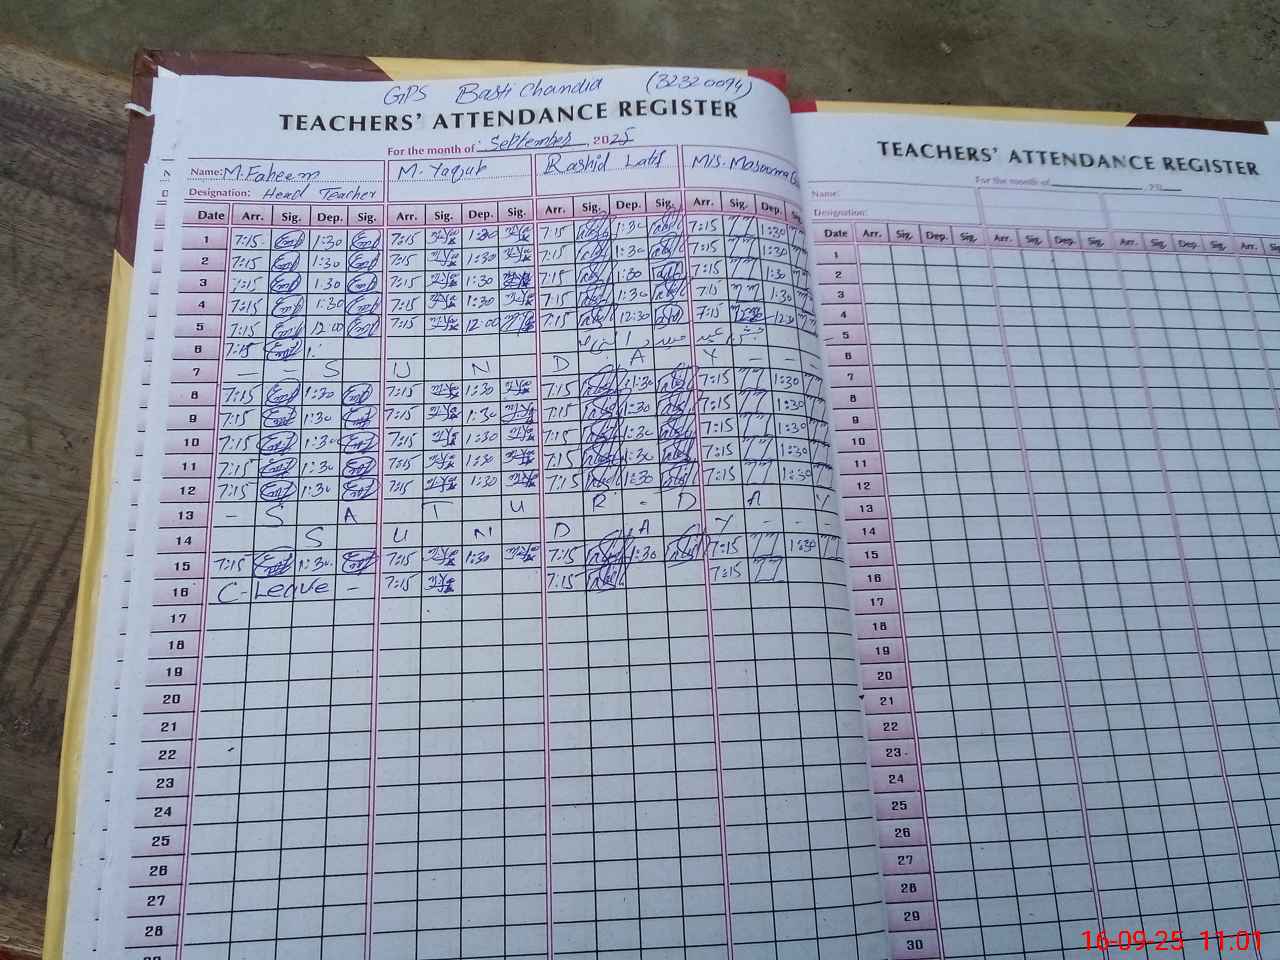 GPS Basti Chandia (32320094)
TEACHERS' ATTENDANCE REGISTER
For the month of September, 2025
Name: M. Faheem M. Yaqub Rashid Latif M/S. Masooma
Designation: Head Teacher
Date Arr. Sig. Dep. Sig. Arr. Sig. Dep. Sig. Arr. Sig. Dep. Sig. Arr. Sig. Dep.
1 7:15 1:30 7:15 1:30 7:15 1:30 7:15 1:30
2 7:15 1:30 7:15 1:30 7:15 1:30 7:15 1:30
3 7:15 1:30 7:15 1:30 7:15 1:30 7:15 1:30
4 7:15 1:30 7:15 1:30 7:15 1:30 7:15 1:30
5 7:15 12:00 7:15 12:00 7:15 12:30 7:15 12:30
6 7:15 1:
7 - - S U N D A Y - - -
8 7:15 1:30 7:15 1:30 7:15 1:30 7:15 1:30
9 7:15 1:30 7:15 1:30 7:15 1:30 7:15 1:30
10 7:15 1:30 7:15 1:30 7:15 1:30 7:15 1:30
11 7:15 1:30 7:15 1:30 7:15 1:30 7:15 1:30
12 7:15 1:30 7:15 1:30 7:15 1:30 7:15 1:30
13 - S A T U R - D A Y
14 S U N D A Y - - -
15 7:15 1:30 7:15 1:30 7:15 1:30 7:15 1:30
16 C-Leave - 7:15 7:15 7:15
17
18
19
20
21
22
23
24
25
26
27
28
TEACHERS' ATTENDANCE REGISTER
For the month of , 20
Name:
Designation:
Date Arr. Sig. Dep. Sig. Arr. Sig. Dep. Sig. Arr. Sig. Dep. Sig. Arr.
1
2
3
4
5
6
7
8
9
10
11
12
13
14
15
16
17
18
19
20
21
22
23
24
25
26
27
28
29
30
16-09-25 11.01